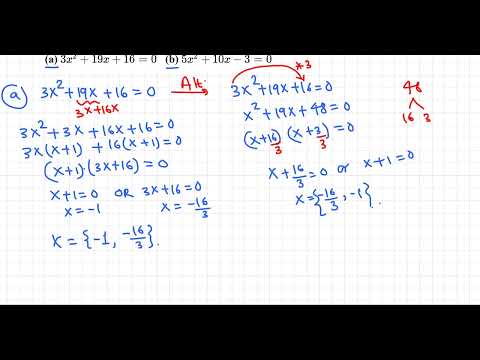 (a) 3x² + 19x + 16 = 0 (b) 5x² + 10x − 3 = 0
(a) 3x² + 19x + 16 = 0
3x+16x
3x² + 3x + 16x + 16 = 0
3x(x+1) + 16(x+1) = 0
(x+1)(3x+16) = 0
x+1=0 OR 3x+16=0
x=-1 x = -16/3
x = {-1, -16/3}.
Alt.
*3
3x² + 19x + 16 = 0
x² + 19x + 48 = 0
(x+16/3)(x+3/3) = 0
x + 16/3 = 0 or x+1=0
x={-16/3, -1}.
48
16 3